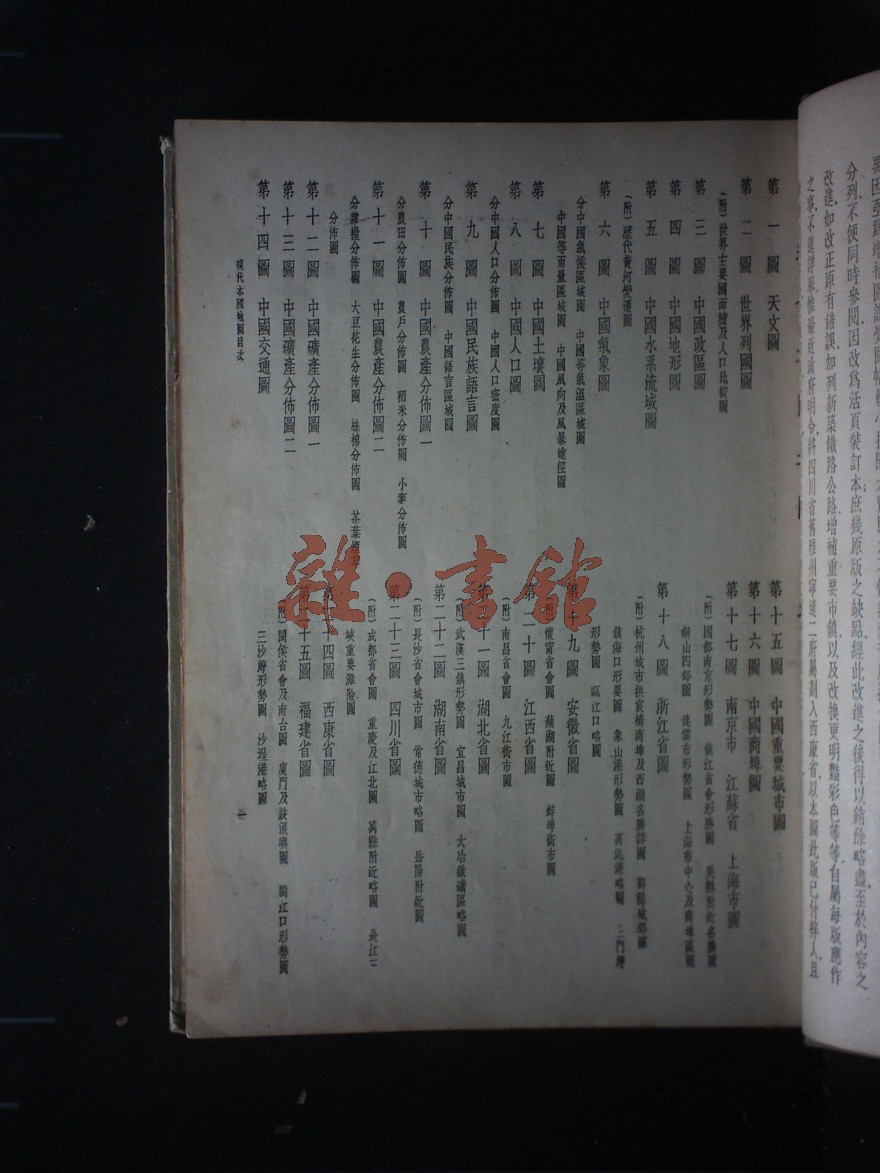 分列,不便同時參閱,因改爲活頁裝訂本,庶幾原版之缺點,經此改進之後,得以銷除略盡,至於內容之
改進,如改正原有錯誤,加列新築鐵路公路,增補重要市鎭,以及改換更明豔彩色等等,自屬每版應作
之事,不遑詳舉,惟最近政府明令,將四川省舊雅州寧遠二府屬劃入西康省,以本圖此版已付梓人,且
第一圖 天文圖
第二圖 世界列國圖
(附)世界主要國面積及人口比較圖
第三圖 中國政區圖
第四圖 中國地形圖
第五圖 中國水系流域圖
(附)歷代黃河變遷圖
第六圖 中國氣象圖
分中國氣候區域圖 中國等氣溫區域圖
中國等雨量區域圖 中國風向及風暴途徑圖
第七圖 中國土壤圖
第八圖 中國人口圖
分中國人口分佈圖 中國人口密度圖
第九圖 中國民族語言圖
分中國民族分佈圖 中國語言區域圖
第十圖 中國農產分佈圖一
分農田分佈圖 農戶分佈圖 稻米分佈圖 小麥分佈圖
第十一圖 中國農產分佈圖二
分雜糧分佈圖 大豆花生分佈圖 絲棉分佈圖 茶葉
分佈圖
第十二圖 中國礦產分佈圖一
第十三圖 中國礦產分佈圖二
第十四圖 中國交通圖
現代本國地圖目次
第十五圖 中國重要城市圖
第十六圖 中國商埠圖
第十七圖 南京市 江蘇省 上海市圖
(附)國都南京形勢圖 鎭江省會形勝圖 吳縣附近名勝圖
銅山四郊圖 連雲市形勢圖 上海市中心及商埠區圖
第十八圖 浙江省圖
(附)杭州城市拱宸橋商埠及西湖名勝詳圖 鄞縣城鄉圖
鎭海口形要圖 象山港形勢圖 三門灣
形勢圖 甌江口略圖
第十九圖 安徽省圖
(附)懷甯省會圖 蕪湖附近圖 蚌埠街市圖
第二十圖 江西省圖
(附)南昌省會圖 九江街市圖
第二十一圖 湖北省圖
(附)武漢三鎭形勢圖 宜昌城市圖 大冶鐵礦區略圖
第二十二圖 湖南省圖
(附)長沙省會城市圖 常德城市略圖 岳陽附近圖
第二十三圖 四川省圖
(附)成都省會圖 重慶及江北圖 萬縣附近略圖 長江三
峽重要灘險圖
第二十四圖 西康省圖
第二十五圖 福建省圖
(附)閩侯省會及南台圖 廈門及鼓浪嶼圖 閩江口形勢圖
三沙灣形勢圖 沙埕港略圖
一
雜·書館